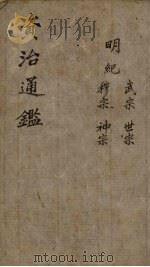 明紀
武宗 世宗
穆宗 神宗
資治通鑑